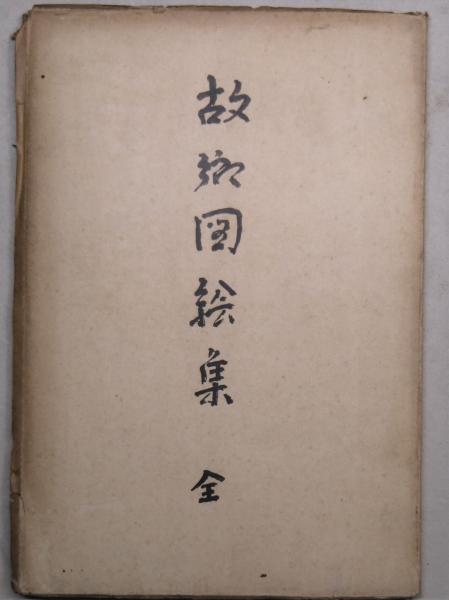 故郷図絵集 全